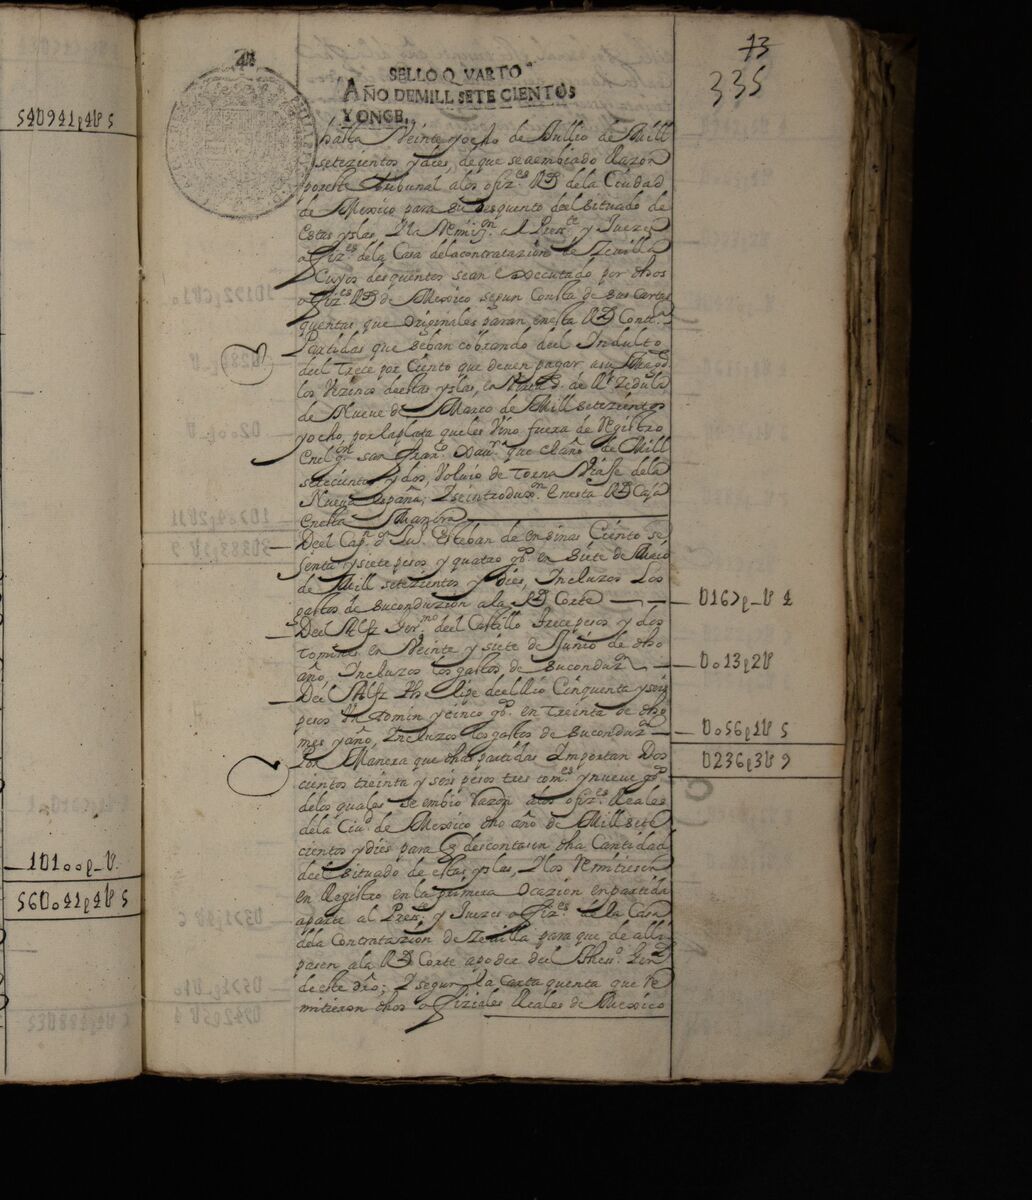 540941p4U 5
101oop_U.
560o41p4U 5
73
335
SELLO QVARTO
AÑO DE MILL SETE CIENTOS
Y ONCE.
hasta Veinte yocho de Jullio de Mill
setezientos y dies, de que se a embiado Razon
por este tribunal alos ofiz.es R.s de la Ciudad
de Mexico para su desquento del situado de
estas yslas, y la Remiz.on al Pres.te y Juezes
ofiz.es dela Casa dela contratazion de Zeuilla
Cuyos desquentos sean executado por dhos
ofiz.es R.s de Mexico segun Consta de sus Cartas
quentas que originales paran, en esta R.l Cont.a
Partidas que se han cobrando del Indulto
del trece por Ciento que deuen pagar a su Mag.d
los Vezinos de estas yslas, en de R.l Zedula
de Nueue de Marco de Mill setezientos
yocho, por la plata que les Vino fuera de registro
en el g.on san Fran.co Xau.r que el año de Mill
setecientos y dos, Voluio de torna Viaje dela
Nueua españa; y se introduxo en esta R.l Caja
en esta Manera
Del Cap.n D.n Lu.s Esteban de ensinas Ciento se
senta y siete pesos y quatro g.s en siete de Maio
de Mill setezientos y dies, Incluzos Los
gastos de su conduzion a la R.l Corte 0167p_U 4
Del Alfz Ger.mo del Castillo trece pesos y dos
tomines en Veinte y siete de Junio de dho
año, Incluzos los gastos de su conduz.on 0o13p2U
Del Alfz Phelipe del Rio Cinquenta y seis
pesos Un tomin y cinco g.s en treinta de dho
mes y año, Incluzos los gastos de su conduz.on 0o56p1U 5
Por Manera que dhas partidas Importan Dos 0236p3U 9
cientos treinta y seis pesos tres tom.es y nueue g.s
delos quales se embio razon alos ofiz.es Reales
dela Ciu.d de Mexico dho año de Mill sete
cientos y dies para q descontasen dha Cantidad
del situado de estas yslas, y los remitiesen
en Registro en la primera ocazion en partida
aparte al Pres.te y Juezes ofiz.es de la Casa
dela Contratazion de Zeuilla para que de alla
pasen a la R.l Corte a poder del Thes.o Gen.l
de este dro; y segun la Carta quenta que re
mitieron dhos ofiziales Reales de Mexico